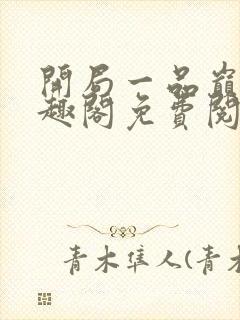 開局一品巔
趣閣免費閱
青木隼人(青木